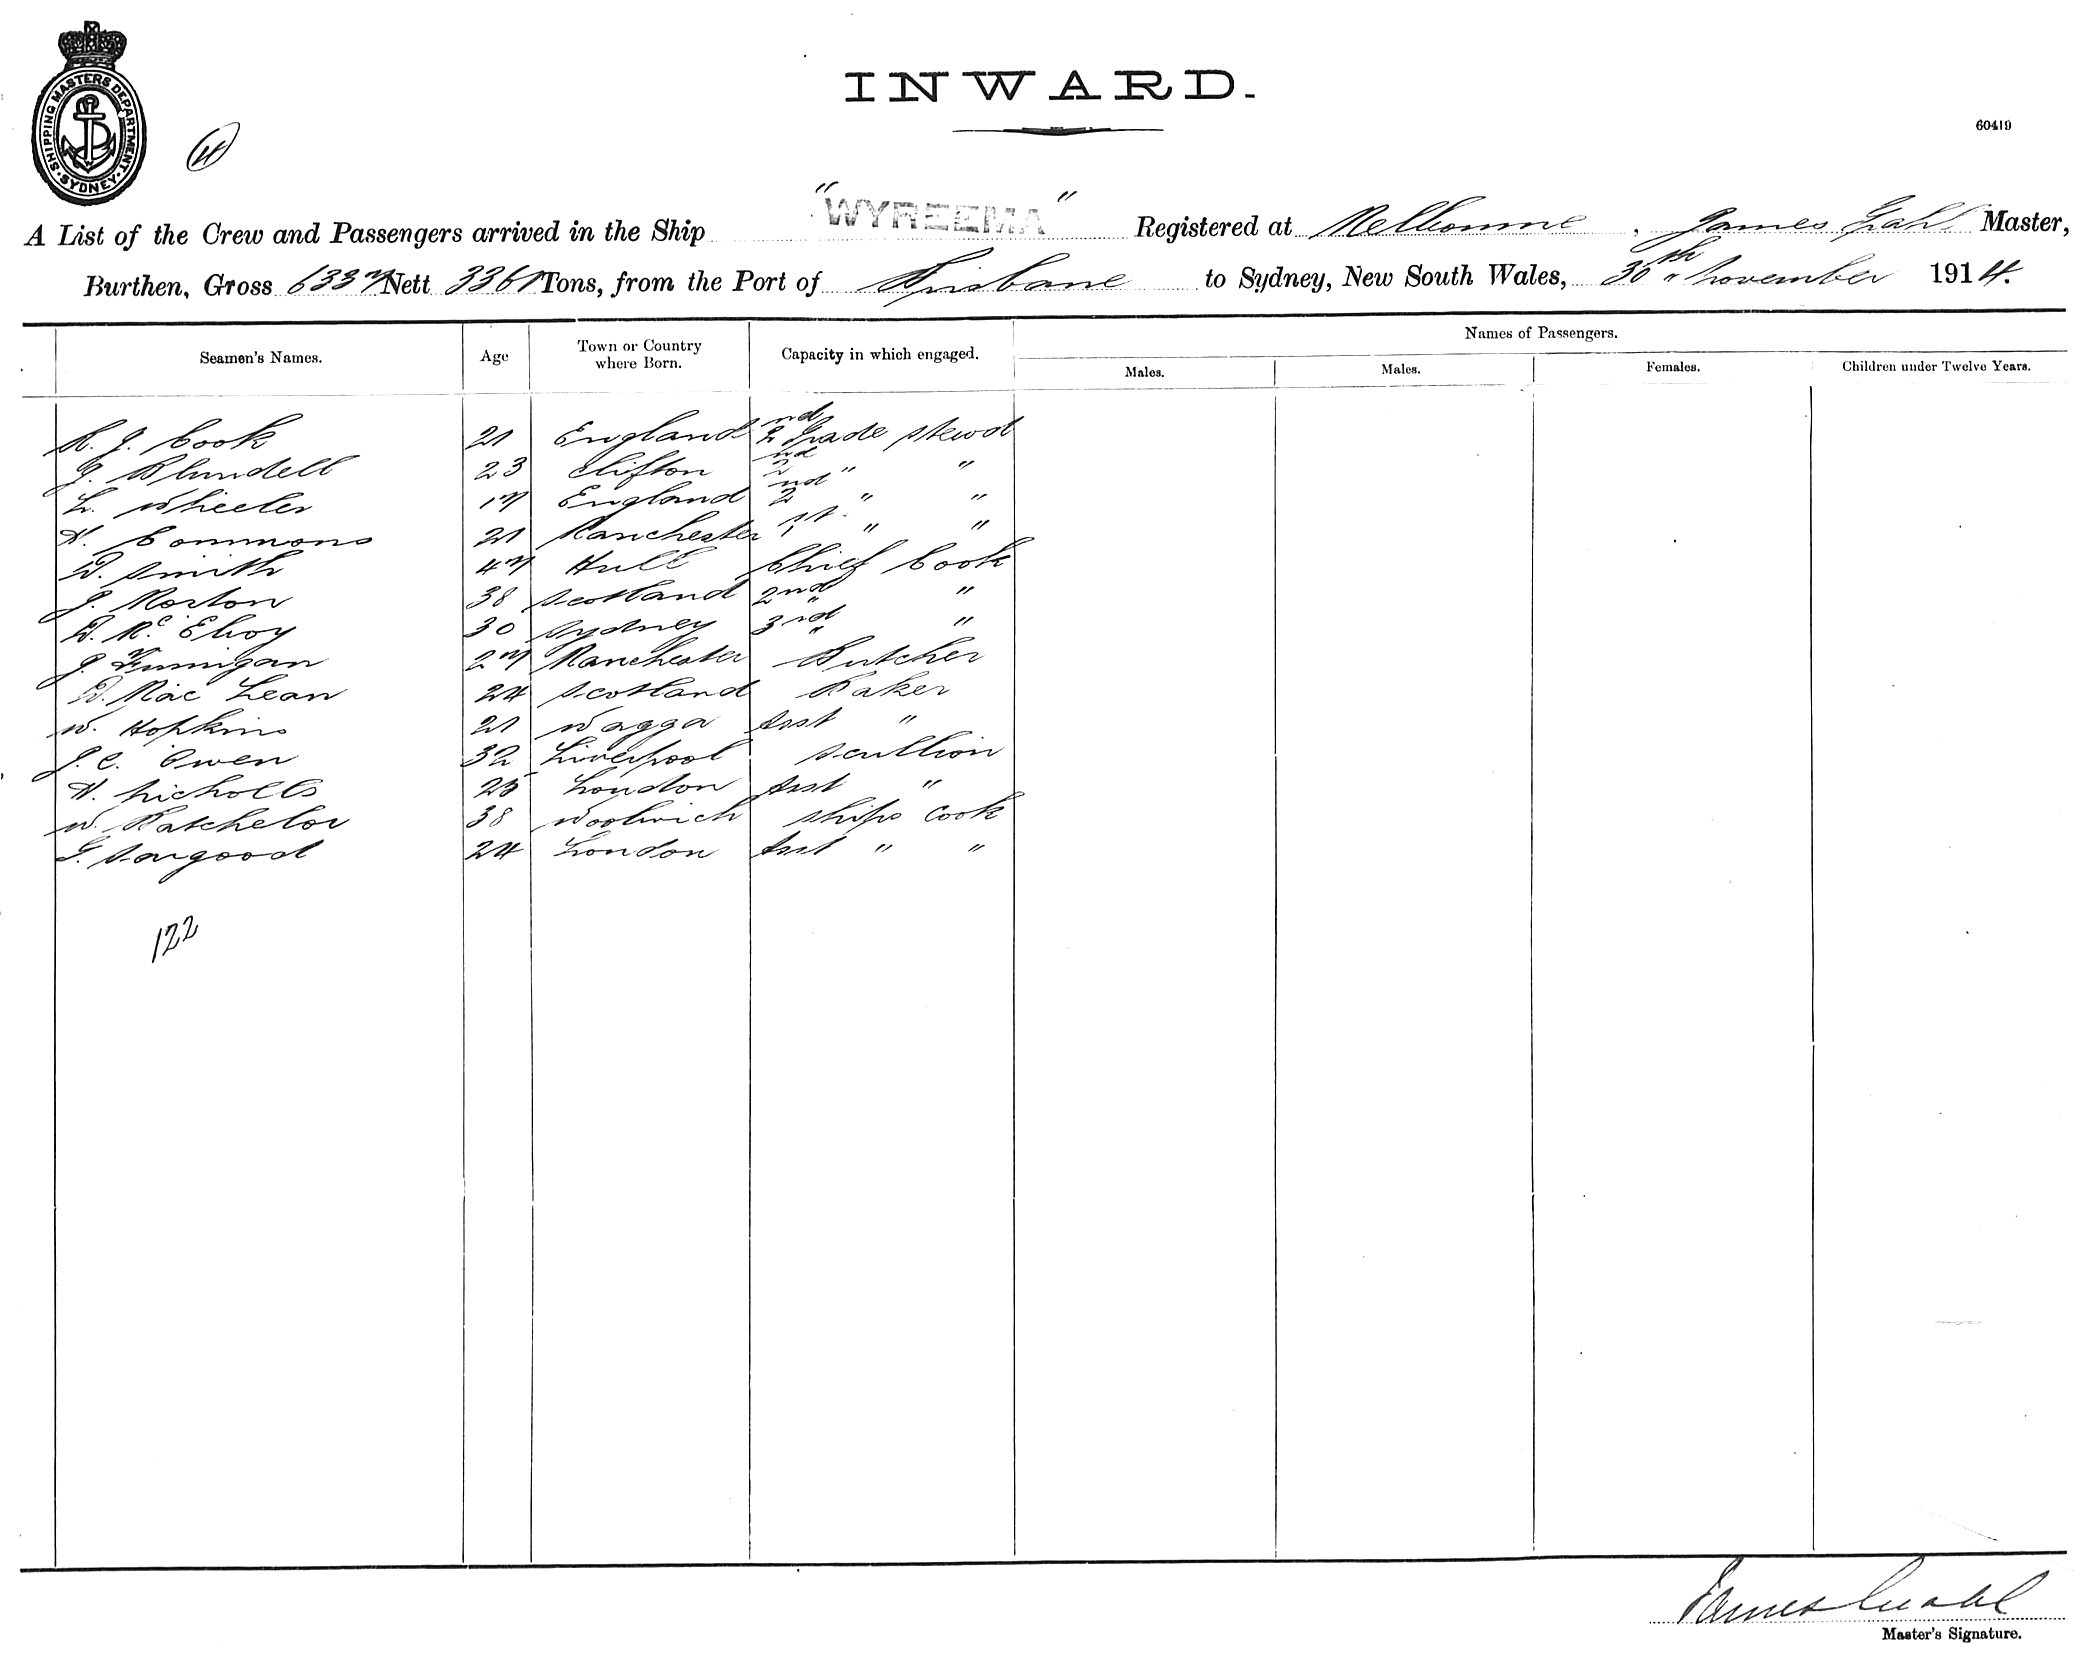 INWARD.
SHIPPING MASTERS DEPARTMENT. SYDNEY.
60419
A List of the Crew and Passengers arrived in the Ship "WYREEMA" Registered at Melbourne, James Master,
Burthen, Gross 6337 Nett 3361 Tons, from the Port of Brisbane to Sydney, New South Wales, 30th November 1914.
Names of Passengers.
Seamen's Names. Age Town or Country where Born. Capacity in which engaged. Males. Males. Females. Children under Twelve Years.
J. Cook 21 England 2nd Grade stewd
J. Blundell 23 Clifton 2nd " "
L. Wheeler 17 England 2nd " "
H. Commons 21 Manchester 1st " "
D. Smith 47 Hull Chief Cook
J. Morton 38 Scotland 2nd " "
D. McElroy 30 Sydney 3rd " "
J. Finnigan 27 Manchester Butcher
D. Mac Lean 24 Scotland Baker
W. Hopkins 21 Wagga Asst "
J. C. Owen 32 Liverpool Scullion
H. Nicholls 25 London Asst "
W. Batchelor 38 Woolwich Ships Cook
G. Sargood 24 London Asst " "
122
James
Master's Signature.